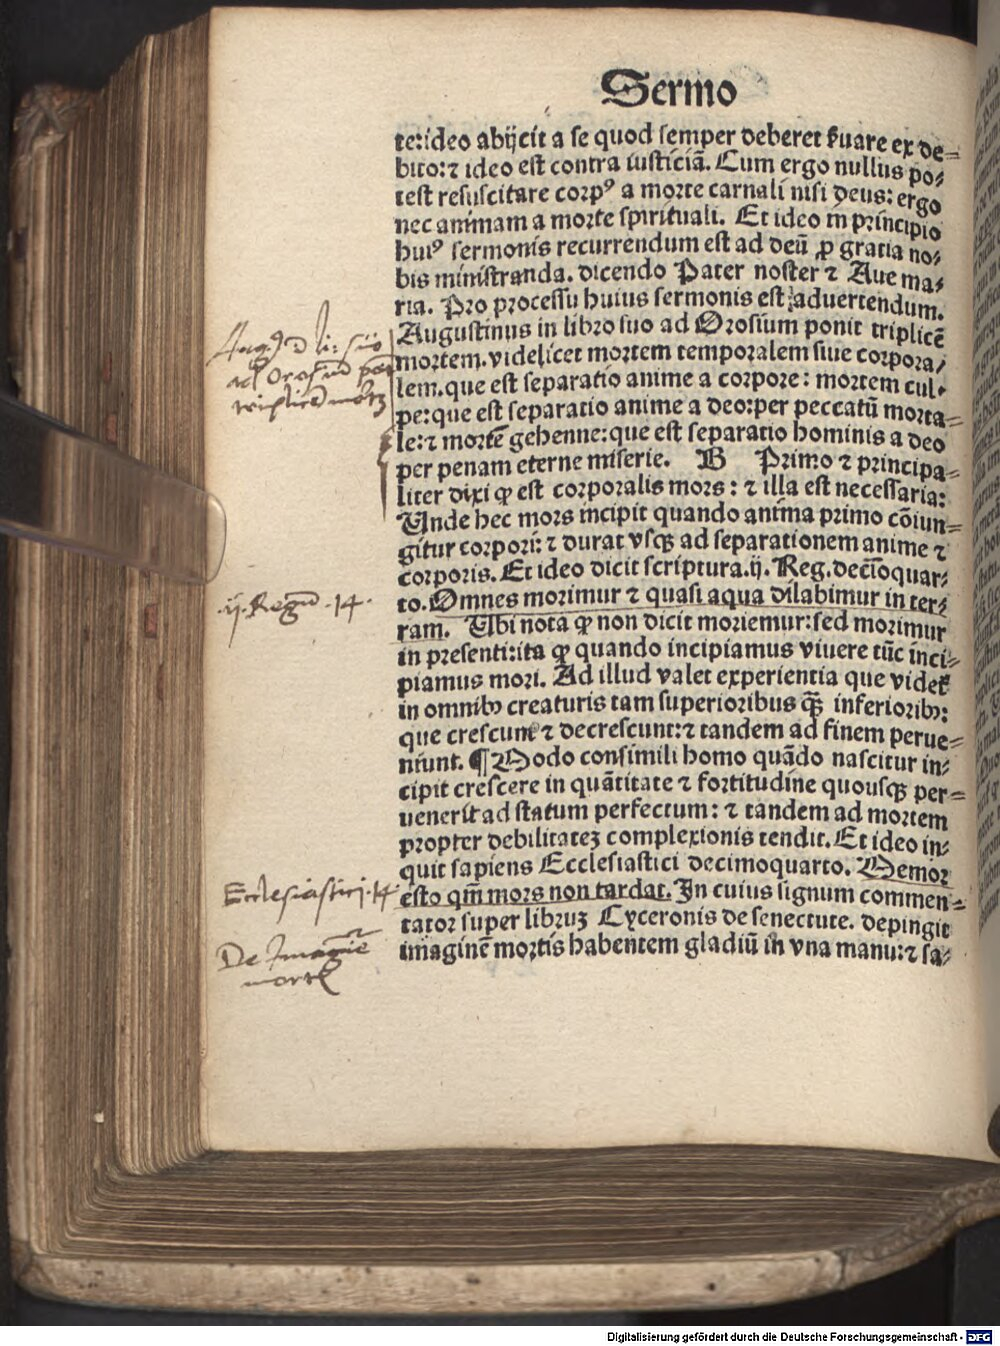 Sermo
te: ideo abijcit a se quod semper deberet ẜuare ex de⸗
bito: ⁊ ideo est contra iusticiā. Cum ergo nullus po⸗
test resuscitare corpꝰ a morte carnali nisi deus: ergo
nec animam a morte spirituali. Et ideo in principio
huiꝰ sermonis recurrendum est ad deū ꝓ gratia no⸗
bis ministranda. dicendo Pater noster ⁊ Aue ma⸗
ria. Pro processu huius sermonis est aduertendum.
Augustinus in libro suo ad Orosium ponit triplicē
mortem. videlicet mortem temporalem siue corpora⸗
lem. que est separatio anime a corpore: mortem cul⸗
pe: que est separatio anime a deo: per peccatū morta⸗
le: ⁊ mortē gehenne: que est separatio hominis a deo
per penam eterne miserie. B Primo ⁊ principa⸗
liter dixi ꝙ est corporalis mors: ⁊ illa est necessaria:
Unde hec mors incipit quando anima primo cōiun⸗
gitur corpori: ⁊ durat vsqꝫ ad separationem anime ⁊
corporis. Et ideo dicit scriptura. ij. Reg. decioquar⸗
to. Omnes morimur ⁊ quasi aqua dilabimur in ter⸗
ram. Ubi nota ꝙ non dicit moriemur: sed morimur
in presenti: ita ꝙ quando incipiamus viuere tūc inci⸗
piamus mori. Ad illud valet experientia que videt̄
in omnibꝫ creaturis tam superioribus qꝫ̄ inferioribꝫ:
que crescunt ⁊ decrescunt: ⁊ tandem ad finem perue⸗
niunt. ¶ Modo consimili homo quādo nascitur in⸗
cipit crescere in quātitate ⁊ fortitudine quousqꝫ per⸗
uenerit ad statum perfectum: ⁊ tandem ad mortem
propter debilitateꝫ complexionis tendit. Et ideo in⸗
quit sapiens Ecclesiastici decimoquarto. Memor
esto qm̄ mors non tardat. In cuius signum commen⸗
tator super libruꝫ Cyceronis de senectute. depingit
imaginē mortis habentem gladiū in vna manu: ⁊ sa⸗
li: suo
ad Orosiū
triplicē mortꝫ
.ij. Regū .14.
Ecclesiastici .14
De Imagine
mortis
Digitalisierung gefördert durch die Deutsche Forschungsgemeinschaft - DFG